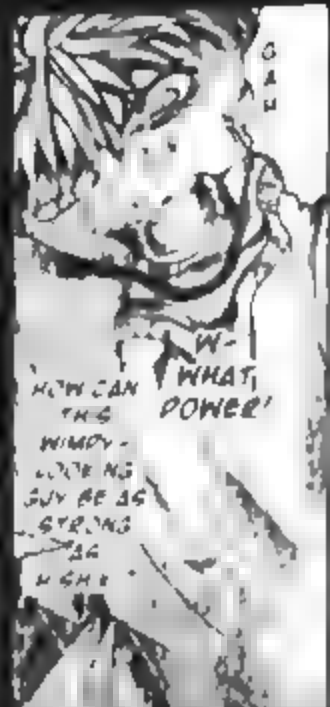 W-
WHAT
POWER!
HOW CAN
THIS
WIMPY-
LOOKING
GUY BE AS
STRONG
AS